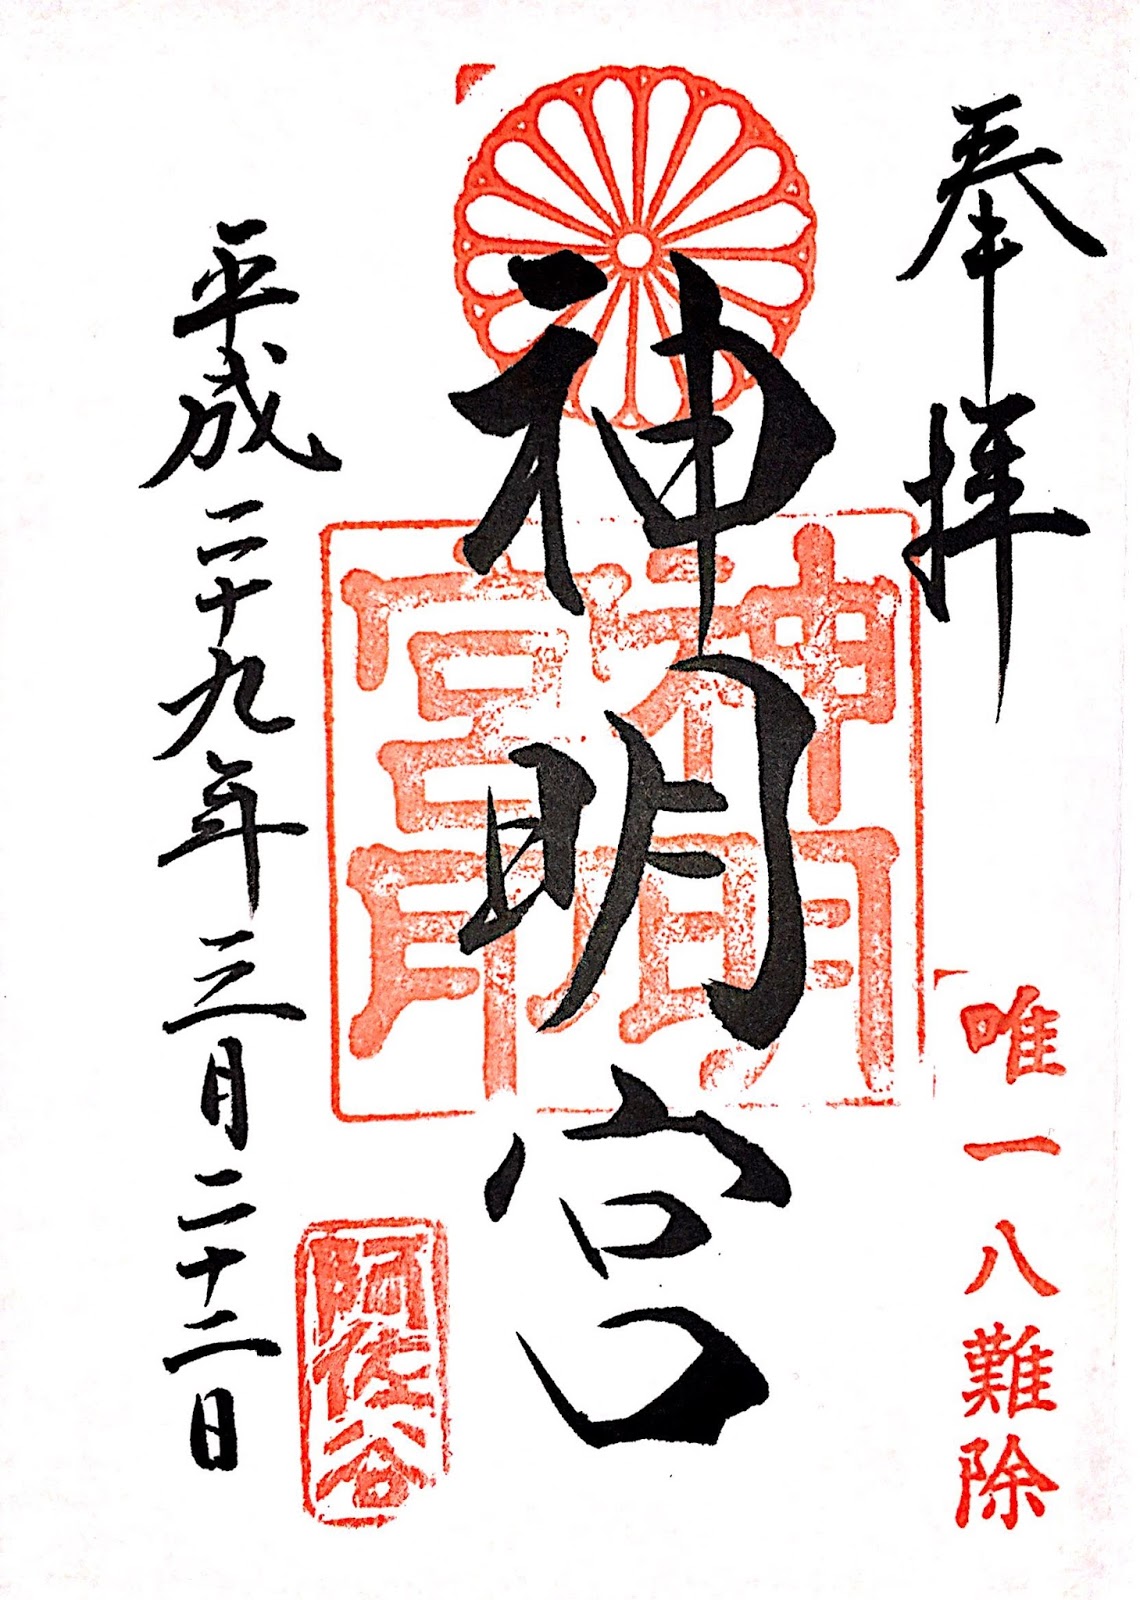 奉拝
唯一八難除
神明宮
神明宮印
阿佐谷
平成二十九年三月二十二日